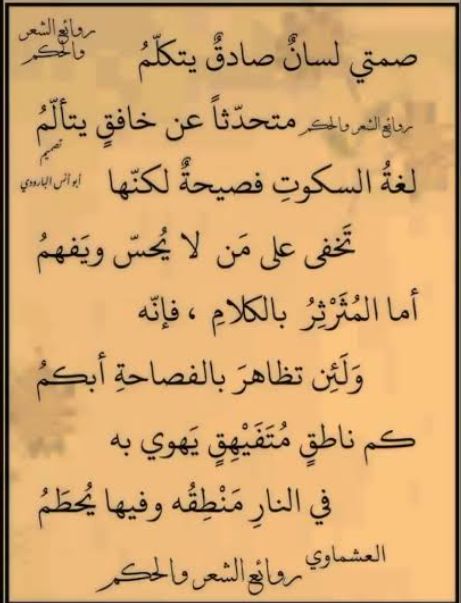 روائع الشعر
والحكم
صمتي لسانٌ صادقٌ يتكلّمُ
روائع الشعر والحكم متحدّثاً عن خافقٍ يتألّمُ
تصميم
لغةُ السكوتِ فصيحةٌ لكنّها
أبو أنس البارودي
تَخفى على مَن لا يُحسّ ويَفهمُ
أما المُثَرْثِرُ بالكلامِ ، فإنّه
وَلَئِن تظاهرَ بالفصاحةِ أبكمُ
كم ناطقٍ مُتَفَيْهِقٍ يَهوي به
في النارِ مَنْطِقُه وفيها يُحطَمُ
العشماوي
روائع الشعر والحكم